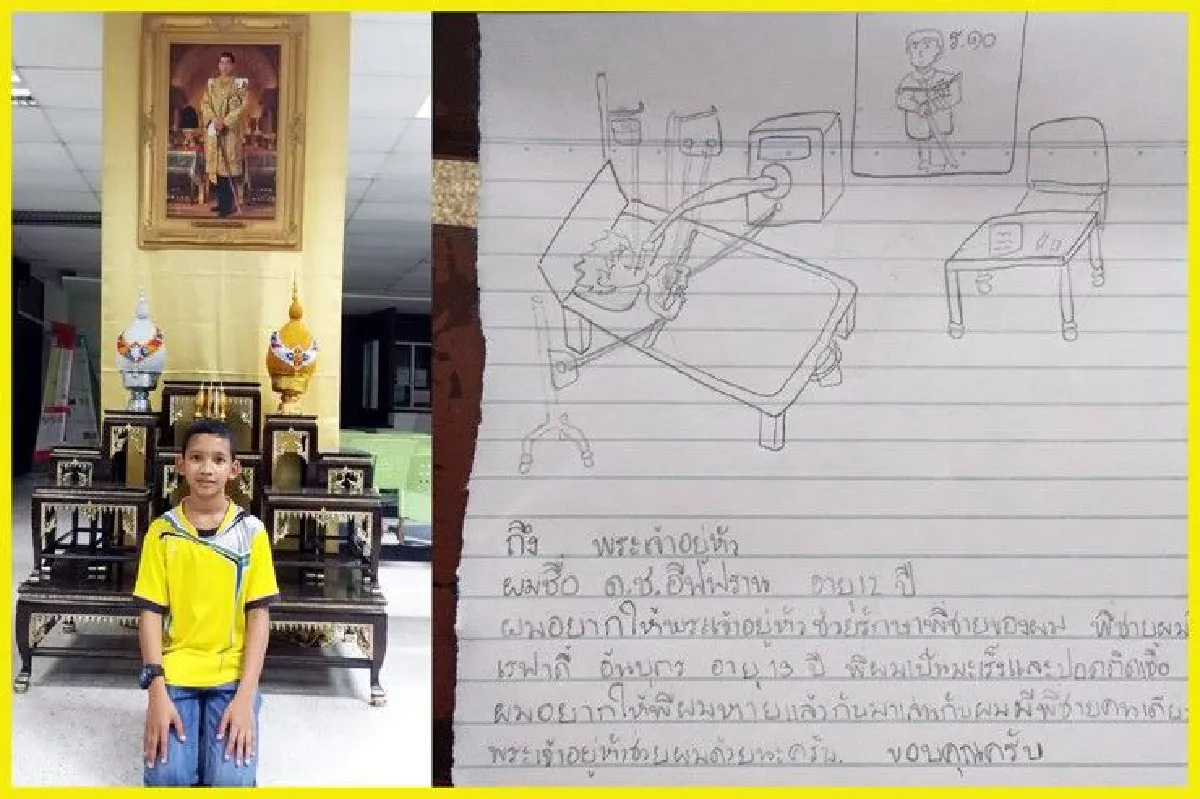 ร.๑๐
ถึง พระเจ้าอยู่หัว
ผมชื่อ ด.ช.อีฟฟราน อายุ 12 ปี
ผมอยากให้พระเจ้าอยู่หัวช่วยรักษาพี่ชายของผม พี่ชายผม
เรฟาดี้ อันบุตร อายุ 13 ปี พี่ผมเป็นมะเร็งและปอดติดเชื้อ
ผมอยากให้พี่ผมหายแล้วกับมาเล่นกับผมมีพี่ชายคนเดีย
พระเจ้าอยู่หัวช่วยผมด้วยนะครับ. ขอบคุณครับ